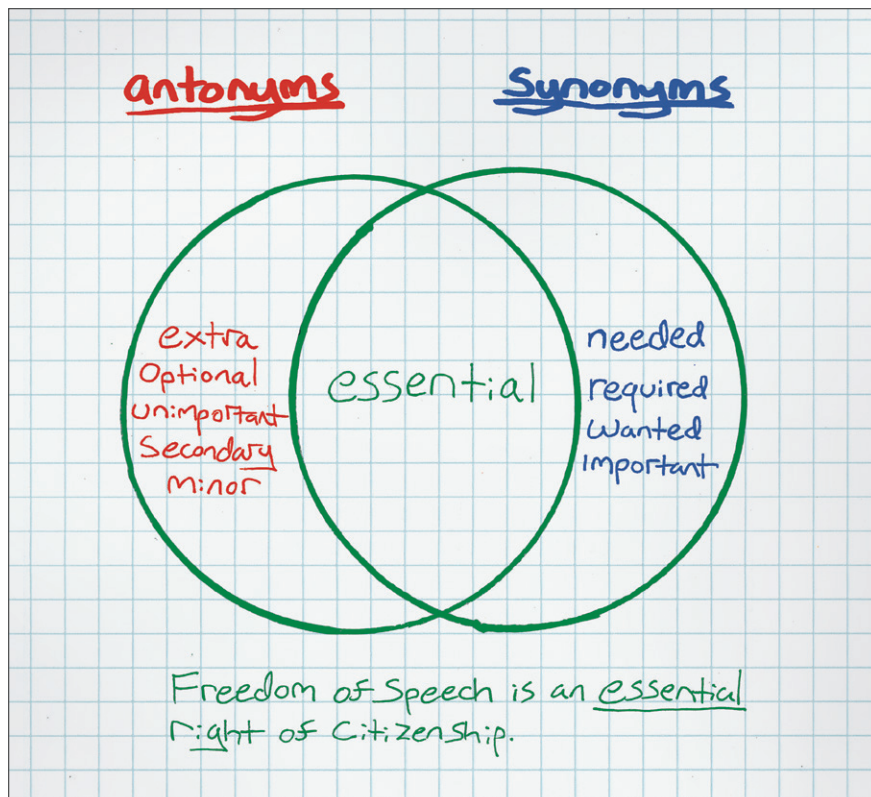 antonyms
synonyms
extra
optional
unimportant
Secondary
minor
essential
needed
required
wanted
important
Freedom of Speech is an essential
right of Citizenship.